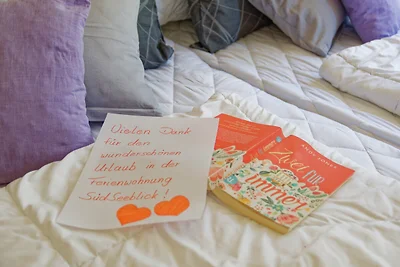 Vielen Dank
für den
wunderschönen
Urlaub in der
Ferienwohnung
Südseeblick!
Zwei für
immer